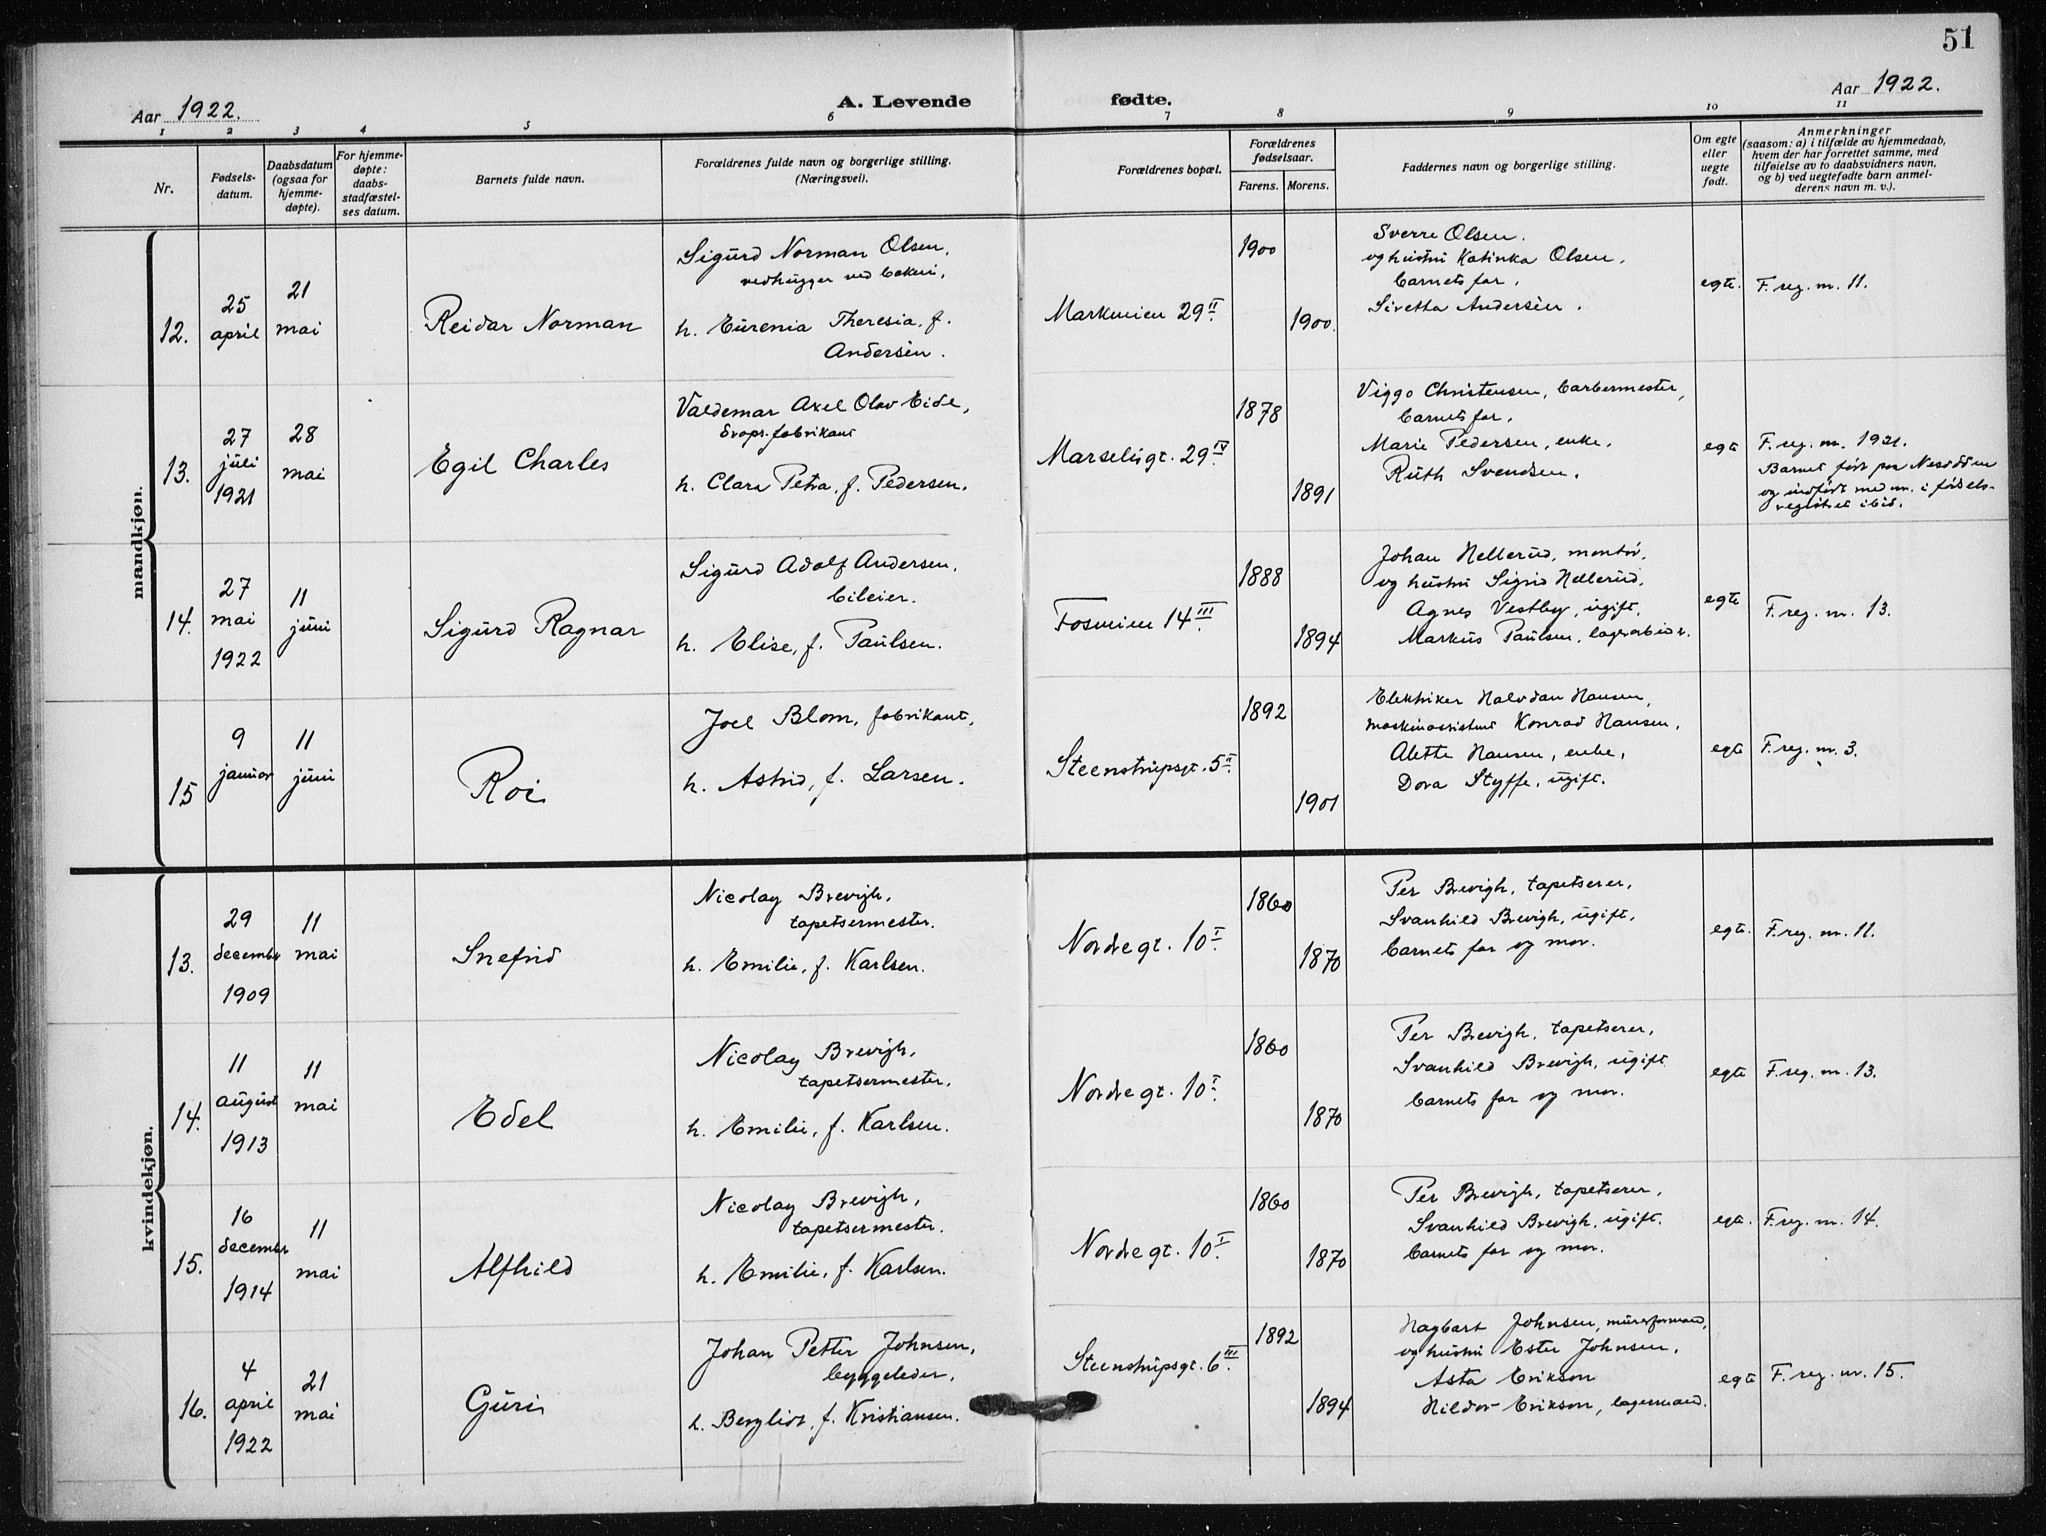 51
Aar 1922.
A. Levende fødte.
Aar 1922.
1 2 3 4 5 6 7 8 9 10 11
Nr.
Fødsels-
datum.
Daabsdatum
(ogsaa for
hjemme-
døpte).
For hjemme-
døpte:
daabs-
stadfæstel-
ses datum.
Barnets fulde navn.
Forældrenes fulde navn og borgerlige stilling.
(Næringsvei).
Forældrenes bopæl.
Forældrenes
fødselsaar.
Farens. Morens.
Faddernes navn og borgerlige stilling.
Om egte
eller
uegte
født.
Anmerkninger
(saasom: a) i tilfælde av hjemmedaab,
hvem der har forrettet samme, med
tilføielse av to daabsvidners navn,
og b) ved uegtefødte barn anmel-
derens navn m. v.).
mandkjøn.
12.
25
april
21
mai
Reidar Norman
Sigurd Norman Olsen,
vedhugger ved bakeri,
h. Eurenia Theresia, f.
Andersen.
Markveien 29 II.
1900
1900.
Sverre Olsen.
og hustru Katinka Olsen,
barnets far,
Sivetta Andersen.
egte.
F. reg. nr. 11.
13.
27
juli
1921
28
mai
Egil Charles
Valdemar Axel Olav Eide,
drops.fabrikant
h. Clara Petra, f. Pedersen.
Marselisgt. 29 IV.
1878
1891
Viggo Christensen, barbermester,
barnets far,
Marie Pedersen, enke,
Ruth Svendsen.
egte
F. reg. nr. 1921.
Barnet født paa Nesodden
og indført med nr. i fødsels-
registret ibid.
14.
27
mai
1922
11
juni
Sigurd Ragnar
Sigurd Adolf Andersen,
bileier.
h. Elise, f. Paulsen.
Fosveien 14 III.
1888
1894
Johan Hellerud, montør,
og hustru Sigrid Hellerud,
Agnes Vestby, ugift,
Markus Paulsen, lagerarbeider.
egte
F. reg. nr. 13.
15
9
januar
11
juni
Roi
Joel Blom, fabrikant,
h. Astrid, f. Larsen.
Steenstrupsgt. 5 II.
1892
1901
Elektriker Halvdan Hansen,
maskinassistent Konrad Hansen,
Alette Hansen, enke,
Dora Styffe, ugift.
egte
F. reg. nr. 3.
kvindekjøn.
13.
29
december
1909
11
mai
Snefrid
Nicolay Brevigh,
tapetsermester.
h. Emilie, f. Karlsen.
Nordregt. 10 I.
1860
1870
Per Brevigh, tapetserer,
Svanhild Brevigh, ugift,
barnets far og mor.
egte.
F. reg. nr. 11.
14.
11
august
1913
11
mai
Edel
Nicolay Brevigh,
tapetsermester,
h. Emilie, f. Karlsen.
Nordregt. 10 I.
1860
1870
Per Brevigh, tapetserer,
Svanhild Brevigh, ugift
barnets far og mor.
egte
F. reg. nr. 13.
15.
16
december
1914
11
mai
Alfhild
Nicolay Brevigh,
tapetsermester.
h. Emilie, f. Karlsen.
Nordregt. 10 I.
1860
1870
Per Brevigh, tapetserer,
Svanhild Brevigh, ugift.
barnets far og mor.
egte.
F. reg. nr. 14.
16.
4
april
1922
21
mai
Guri
Johan Petter Johnsen,
byggeleder,
h. Bergliot, f. Kristiansen.
Steenstrupsgt. 6 III.
1892
1894
Hagbart Johnsen, murerformand,
og hustru Ester Johnsen,
Asta Erikson
Hildor Erikson, lagermand.
egte
F. reg. nr. 15.